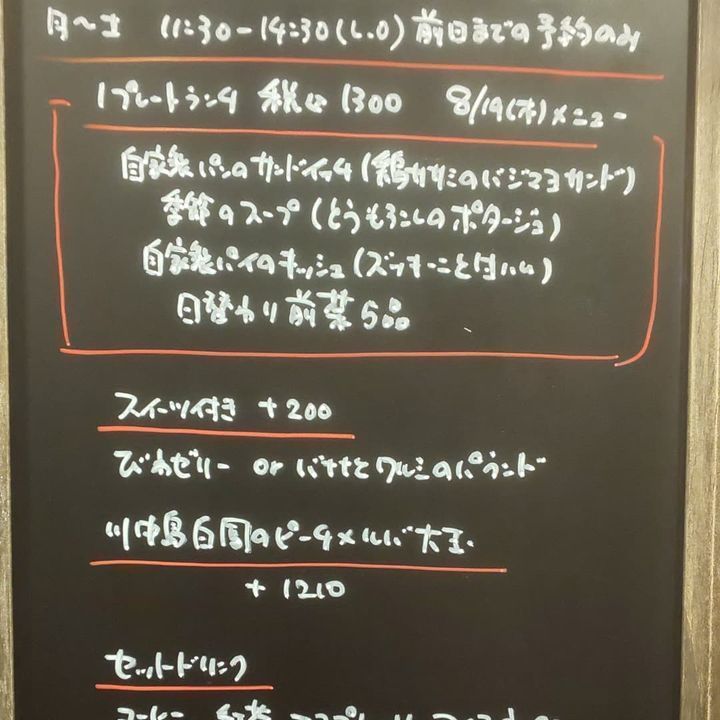 月〜土 11:30-14:30(L.O) 前日までの予約のみ
1プレートランチ 税込 1300 8/19(木)メニュー
自家製パンのサンドイッチ(鶏ササミのバジマヨサンド)
季節のスープ(とうもろこしのポタージュ)
自家製パイのキッシュ(ズッキーニと生ハム)
日替わり前菜5品
スイーツ付き +200
びわゼリー or バナナとクルミのパウンド
川中島白鳳のピーチメルバ大王
+1210
セットドリンク
コーヒー 紅茶